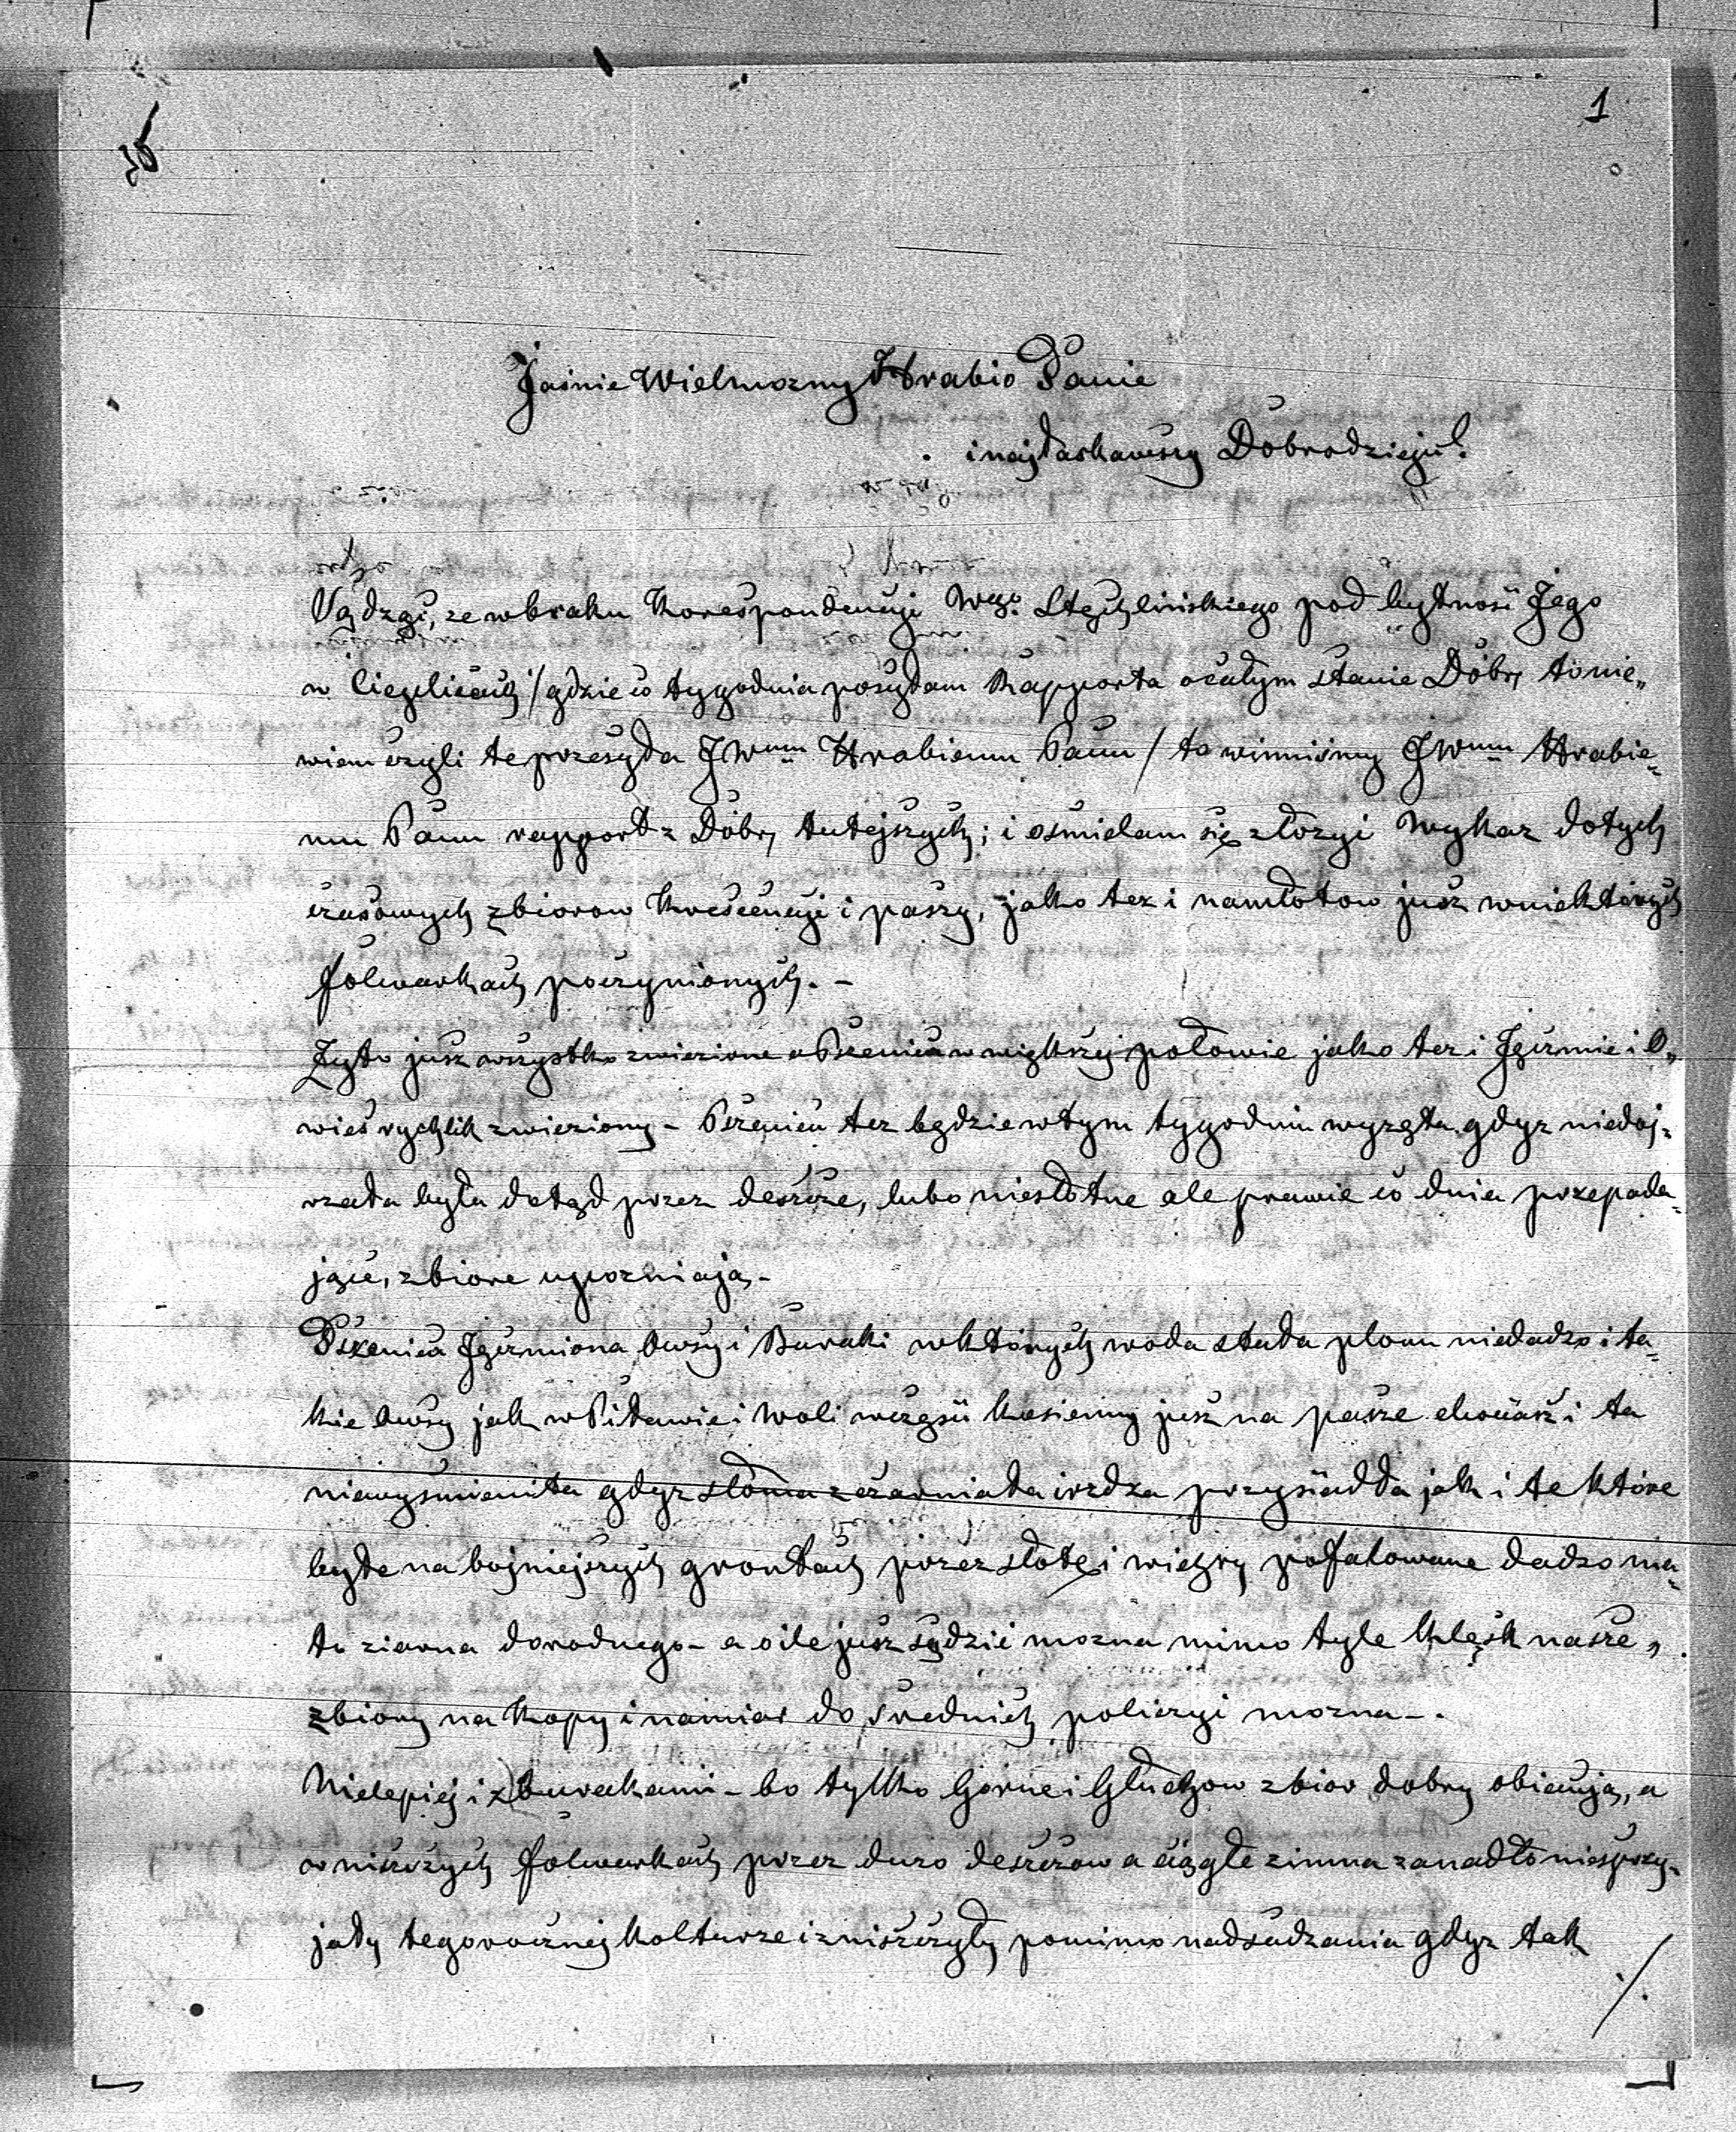 1
Jaśnie Wielmozny Hrabio Panie
i najłaskawszy Dobrodzieju!
Sądząc, ze w braku Korespondencyi Wgo pod bytność Jego
w / gdzie co tygodnia posyłam Rapporta o całym stanie Dóbr, to nie„
wiem czyli te przesyła JWmu Hrabiemu Panu / to winniśmy JWmu Hrabie=
mu Panu rapport z Dóbr, tutejszych; i ośmielam się złozyć Wykaz dotych
czasowych zbiorow Krescencyi i paszy, jako tez i namłotow jusz w niektórych
folwarkach poczynionych. –
Zyto jusz wszystko zwiezione a Pszenica w większej połowie jako tez i Jęczmie i O„
wies rychlik zwieziony – Pszenica tez będzie w tym tygodniu wyzęta gdyz niedoj=
rzała była dotąd przez deszcze, lubo niesłotne ale prawie co dnia przepada=
jące, zbiore upozniają, –
Pszenica Jęczmiona Owsy i Buraki w których woda stała plonu niedadzo i ta=
kie Owsy jak w Pitawie i Woli wczęści kosiemy jusz na pasze chociasz i ta
niewyśmienita gdyz słoma zczarniała i rdza przysiadła jak i te które
byłe na bojniejszych grontach przez słotę i wichry pofalowane dadzo ma=
ło ziarna dorodnego – a o ile jusz sądzić mozna mimo tyle klęsk nasze„
zbiory na Kopy i namiar do średnich policzyć mozna –.
Nielepiej i z burakami – bo tylko Górne i Głuchow zbior dobry obiecują, a
w niższych folwarkach przez duzo deszczow a ciągłe zimna zanadto niesprzy=
jały tegorocznej kolturze i zniszczyły pomimo nadsadzania gdyz tak
./.